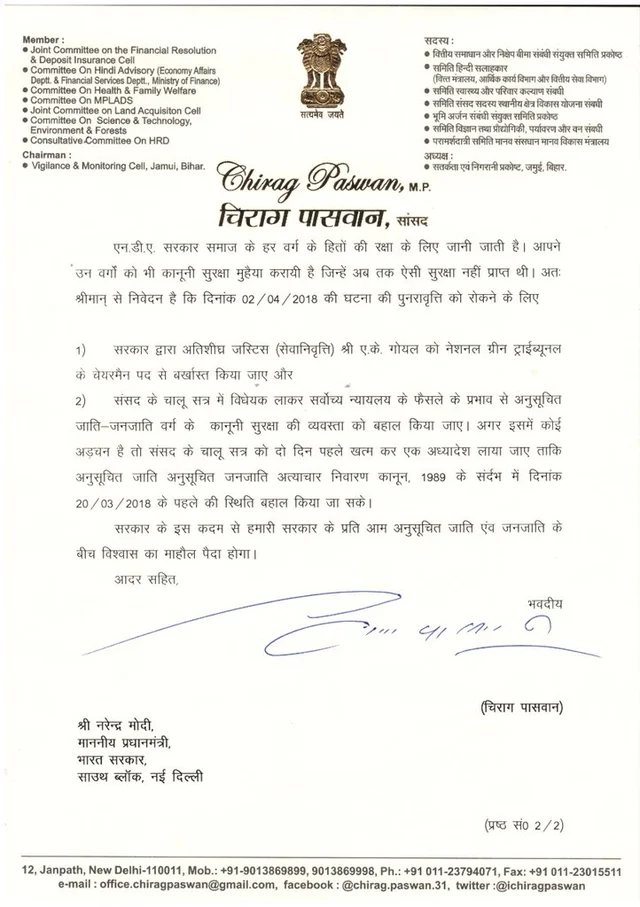 Member :
• Joint Committee on the Financial Resolution
& Deposit Insurance Cell
• Committee On Hindi Advisory (Economy Affairs
Deptt. & Financial Services Deptt., Ministry of Finance)
• Committee On Health & Family Welfare
• Committee On MPLADS
• Joint Committee on Land Acquisiton Cell
• Committee On Science & Technology,
Environment & Forests
• Consultative Committee On HRD
Chairman :
• Vigilance & Monitoring Cell, Jamui, Bihar.
सत्यमेव जयते
सदस्य :
• वित्तीय समाधान और निक्षेप बीमा संबंधी संयुक्त समिति प्रकोष्ठ
• समिति हिन्दी सलाहकार
(वित्त मंत्रालय, आर्थिक कार्य विभाग और वित्तीय सेवा विभाग)
• समिति स्वास्थ्य और परिवार कल्याण संबधी
• समिति संसद सदस्य स्थानीय क्षेत्र विकास योजना संबधी
• भूमि अर्जन संबंधी संयुक्त समिति प्रकोष्ठ
• समिति विज्ञान तथा प्रौद्योगिकी, पर्यावरण और वन संबधी
• परामर्शदात्री समिति मानव संसधान मानव विकास मंत्रालय
अध्यक्ष :
• सतर्कता एवं निगरानी प्रकोष्ट, जमुई, बिहार.
Chirag Paswan, M.P.
चिराग पासवान, सांसद
एन.डी.ए. सरकार समाज के हर वर्ग के हितों की रक्षा के लिए जानी जाती है। आपने
उन वर्गो को भी कानूनी सुरक्षा मुहैया करायी है जिन्हें अब तक ऐसी सुरक्षा नहीं प्राप्त थी। अतः
श्रीमान् से निवेदन है कि दिनांक 02/04/2018 की घटना की पुनरावृत्ति को रोकने के लिए
1) सरकार द्वारा अतिशीघ्र जस्टिस (सेवानिवृत्ति) श्री ए.के. गोयल को नेशनल ग्रीन ट्राईब्यूनल
के चेयरमैन पद से बर्खास्त किया जाए और
2) संसद के चालू सत्र में विधेयक लाकर सर्वोच्य न्यायलय के फैसले के प्रभाव से अनुसूचित
जाति–जनजाति वर्ग के कानूनी सुरक्षा की व्यवस्ता को बहाल किया जाए। अगर इसमें कोई
अड़चन है तो संसद के चालू सत्र को दो दिन पहले खत्म कर एक अध्यादेश लाया जाए ताकि
अनुसूचित जाति अनुसूचित जनजाति अत्याचार निवारण कानून, 1989 के संर्दभ में दिनांक
20/03/2018 के पहले की स्थिति बहाल किया जा सके।
सरकार के इस कदम से हमारी सरकार के प्रति आम अनुसूचित जाति एंव जनजाति के
बीच विश्वास का माहौल पैदा होगा।
आदर सहित,
भवदीय
(चिराग पासवान)
श्री नरेन्द्र मोदी,
माननीय प्रधानमंत्री,
भारत सरकार,
साउथ ब्लॉक, नई दिल्ली
(प्रष्ठ सं0 2/2)
12, Janpath, New Delhi-110011, Mob.: +91-9013869899, 9013869998, Ph.: +91 011-23794071, Fax: +91 011-23015511
e-mail : office.chiragpaswan@gmail.com, facebook : @chirag.paswan.31, twitter :@ichiragpaswan